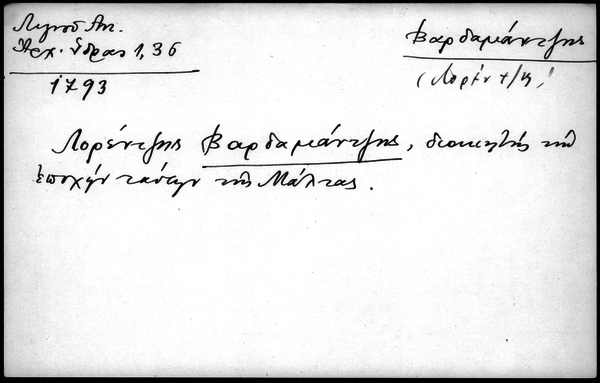 Λιγνοῦ Ἀν.
Ἀρχ. Ὕδρας 1, 36
1793
Βαρδαμάντζης
(Λορέντ/ης)
Λορέντζης Βαρδαμάντζης, διοικητής τὴν
ἐποχὴν ταύτην τῆς Μάλτας.